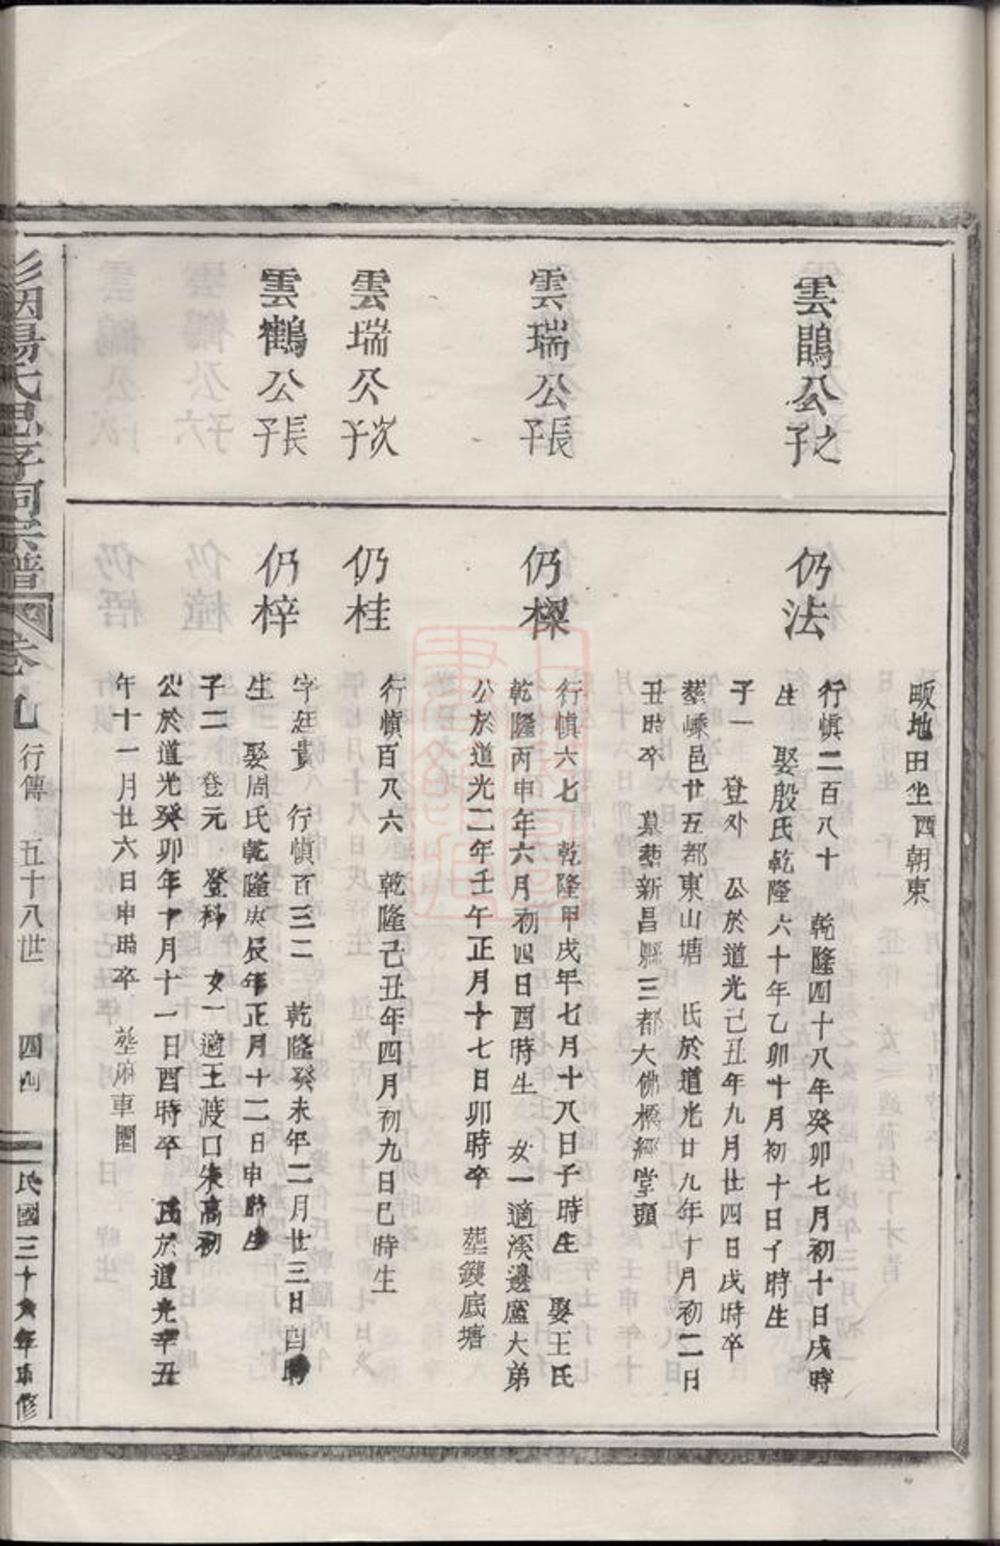 畈地田坐酉朝東
雲鵾公之子
仍法
行慎二百八十　乾隆四十八年癸卯七月初十日戌時
生　娶殷氏乾隆六十年乙卯十月初十日子時生
子一　登外　公於道光己丑年九月廿四日戌時卒
塟嵊邑廿五都東山塘　氏於道光廿九年十月初二日
丑時卒　塟新昌縣三都大佛橋經堂頭
雲瑞公長子
仍樑
行慎六七　乾隆甲戌年七月十八日子時生　娶王氏
乾隆丙申年六月初四日酉時生　女一適溪邊盧大弟
公於道光二年壬午正月十七日卯時卒　塟鑊底塘
雲瑞公次子
仍桂
行慎百八六　乾隆己丑年四月初九日巳時生
雲鶴公長子
仍梓
字廷貴　行慎百三二　乾隆癸未年二月廿三日酉時
生　娶周氏乾隆庚辰年正月十二日申時生
子二　登元　登科　女一適王渡口朱高初
公於道光癸卯年十月十一日酉時卒　氏於道光辛丑
年十一月廿六日申時卒　塟麻車園
楊氏思孝祠宗譜　卷九　行傳　五十八世　四四　民國三十六年重修